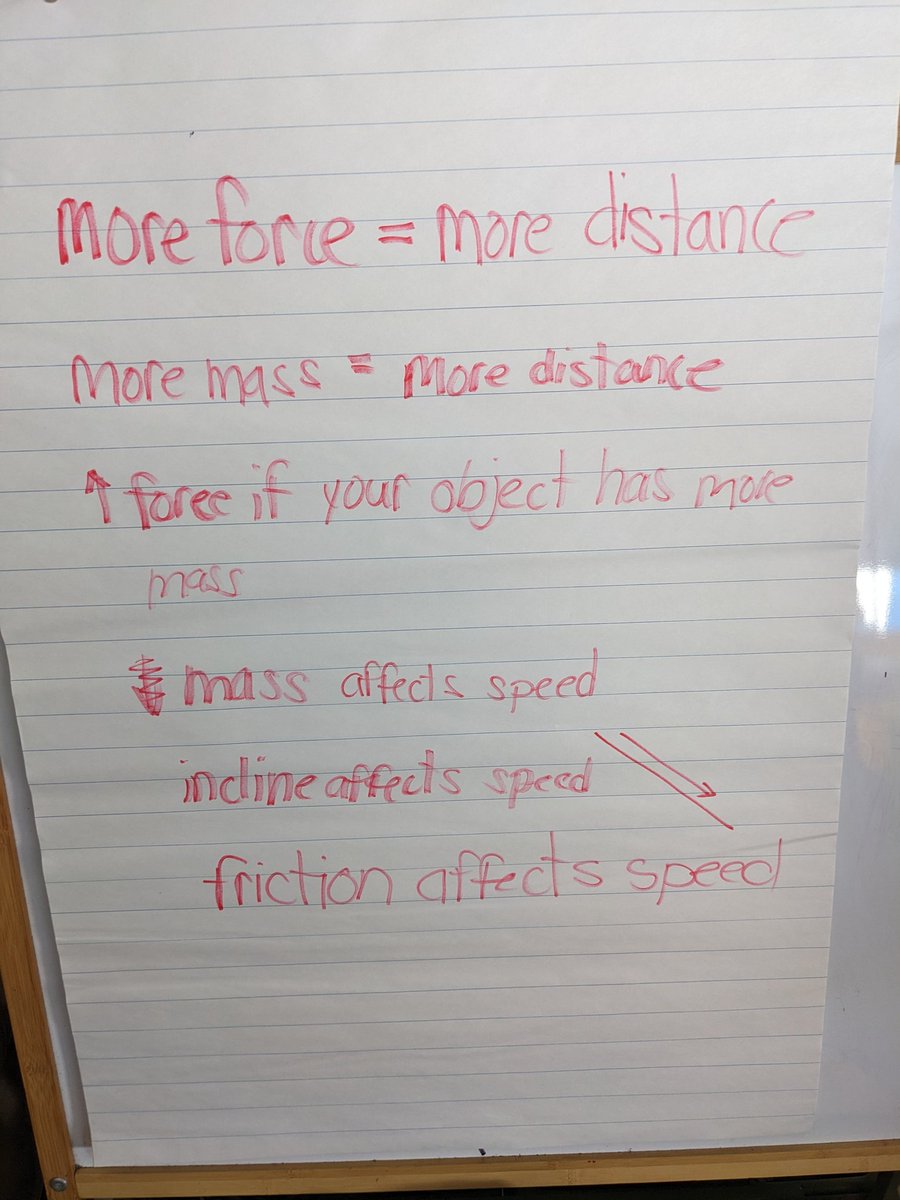 more force = more distance
more mass = more distance
↑ force if your object has more
mass
mass affects speed
incline affects speed
friction affects speed